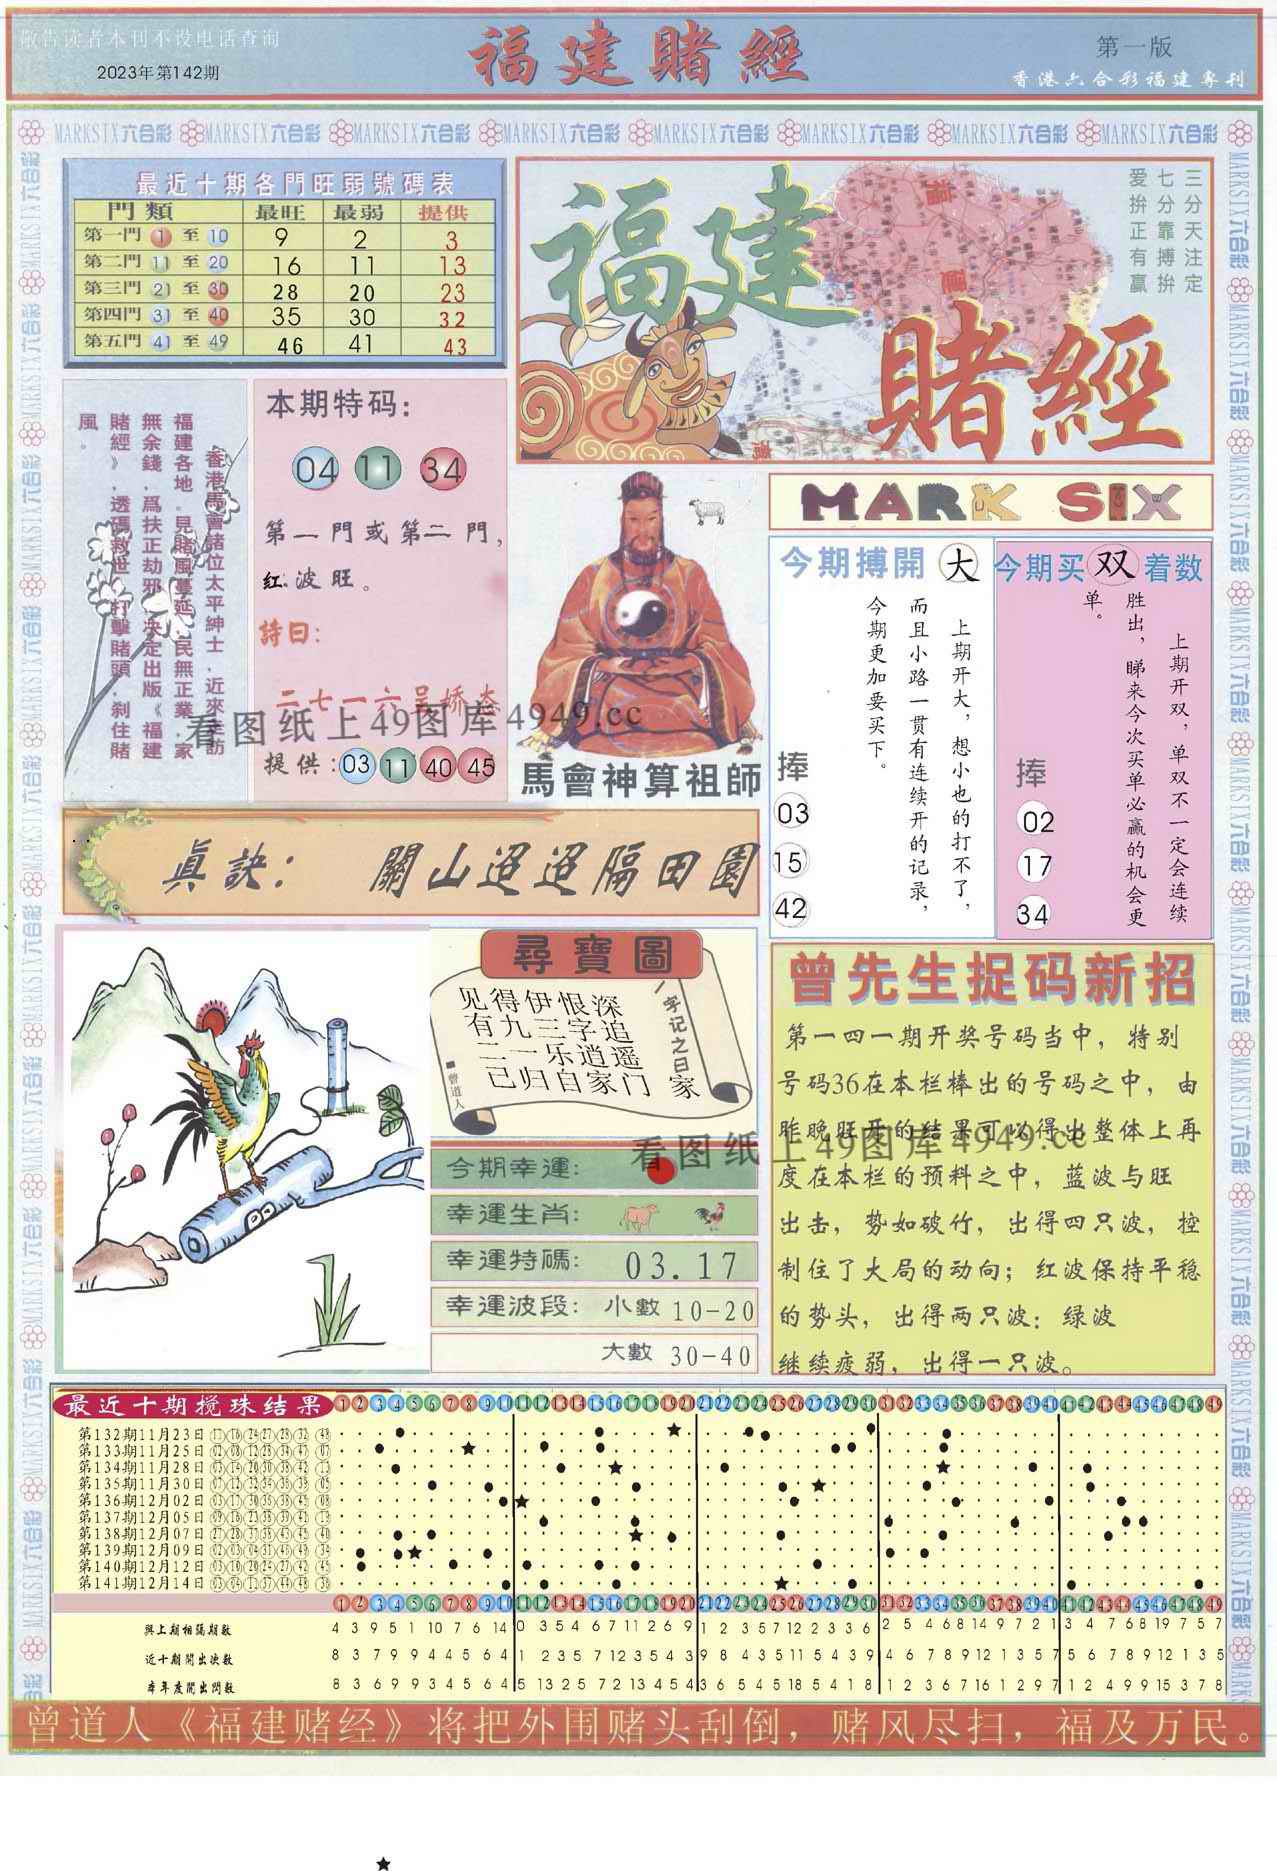 敬告读者本刊不设电话查询
2023年第142期
福建賭經
第一版
香港六合彩福建專刊
MARKSIX六合彩 MARKSIX六合彩 MARKSIX六合彩 MARKSIX六合彩 MARKSIX六合彩 MARKSIX六合彩 MARKSIX六合彩 MARKSIX六合彩
最近十期各門旺弱號碼表
門類 最旺 最弱 提供
第一門 1 至 10 9 2 3
第二門 11 至 20 16 11 13
第三門 21 至 30 28 20 23
第四門 31 至 40 35 30 32
第五門 41 至 49 46 41 43
福建
賭經
三分天注定
七分靠搏拚
爱拚正有赢
香港馬會諸位太平紳士．近來走訪
福建各地．見賭風蔓延．民無正業．家
無余錢．爲扶正劫邪．决定出版《福建
賭經》．透碼救世．打擊賭頭．刹住賭
風。
本期特码：
04 11 34
第一門或第二門，
红波旺。
詩曰：
二七一六呈娇态
提供：03 11 40 45
看图纸上49图库4949.cc
馬會神算祖師
MARK SIX
今期搏開 大
上期开大，想小也的打不了，
而且小路一贯有连续开的记录，
今期更加要买下。
捧
03
15
42
今期买 双 着数
上期开双，单双不一定会连续
胜出，睇来今次买单必赢的机会更
单。
捧
02
17
34
真訣： 關山迢迢隔田園
尋寶圖
见得伊恨深
有九三字追
二一乐逍遥
己归自家门
一字记之曰 家
■曾道人
今期幸運：
幸運生肖：
幸運特碼： 03.17
幸運波段： 小數 10-20
大數 30-40
曾先生捉码新招
第一四一期开奖号码当中，特别
号码36在本栏棒出的号码之中，由
昨晚旺开的结果可以得出整体上再
度在本栏的预料之中，蓝波与旺
出击，势如破竹，出得四只波，控
制住了大局的动向；红波保持平稳
的势头，出得两只波；绿波
继续疲弱，出得一只波。
看图纸上49图库4949.cc
最近十期搅珠结果
1 2 3 4 5 6 7 8 9 10 11 12 13 14 15 16 17 18 19 20 21 22 23 24 25 26 27 28 29 30 31 32 33 34 35 36 37 38 39 40 41 42 43 44 45 46 47 48 49
第132期11月23日
第133期11月25日
第134期11月28日
第135期11月30日
第136期12月02日
第137期12月05日
第138期12月07日
第139期12月09日
第140期12月12日
第141期12月14日
1 2 3 4 5 6 7 8 9 10 11 12 13 14 15 16 17 18 19 20 21 22 23 24 25 26 27 28 29 30 31 32 33 34 35 36 37 38 39 40 41 42 43 44 45 46 47 48 49
與上期相隔期數 4 3 9 5 1 10 7 6 14 0 3 5 4 6 7 11 2 6 9 1 2 3 5 7 12 2 3 3 6 2 5 4 6 8 14 9 7 2 1 3 4 7 6 8 19 7 5 7
近十期開出次數 8 3 7 9 9 4 4 5 6 4 1 2 3 5 7 12 3 5 4 3 9 8 4 3 5 11 5 4 3 9 4 6 7 8 9 12 1 3 5 1 3 7 5 8 9 12 1 3 5
本年度開出門數 8 3 6 9 9 3 4 5 6 4 5 13 2 5 7 2 13 4 5 4 3 6 5 4 5 18 5 4 1 8 1 2 3 6 7 16 1 2 9 7 1 2 4 9 9 15 3 7 8
曾道人《福建赌经》将把外围赌头刮倒，赌风尽扫，福及万民。